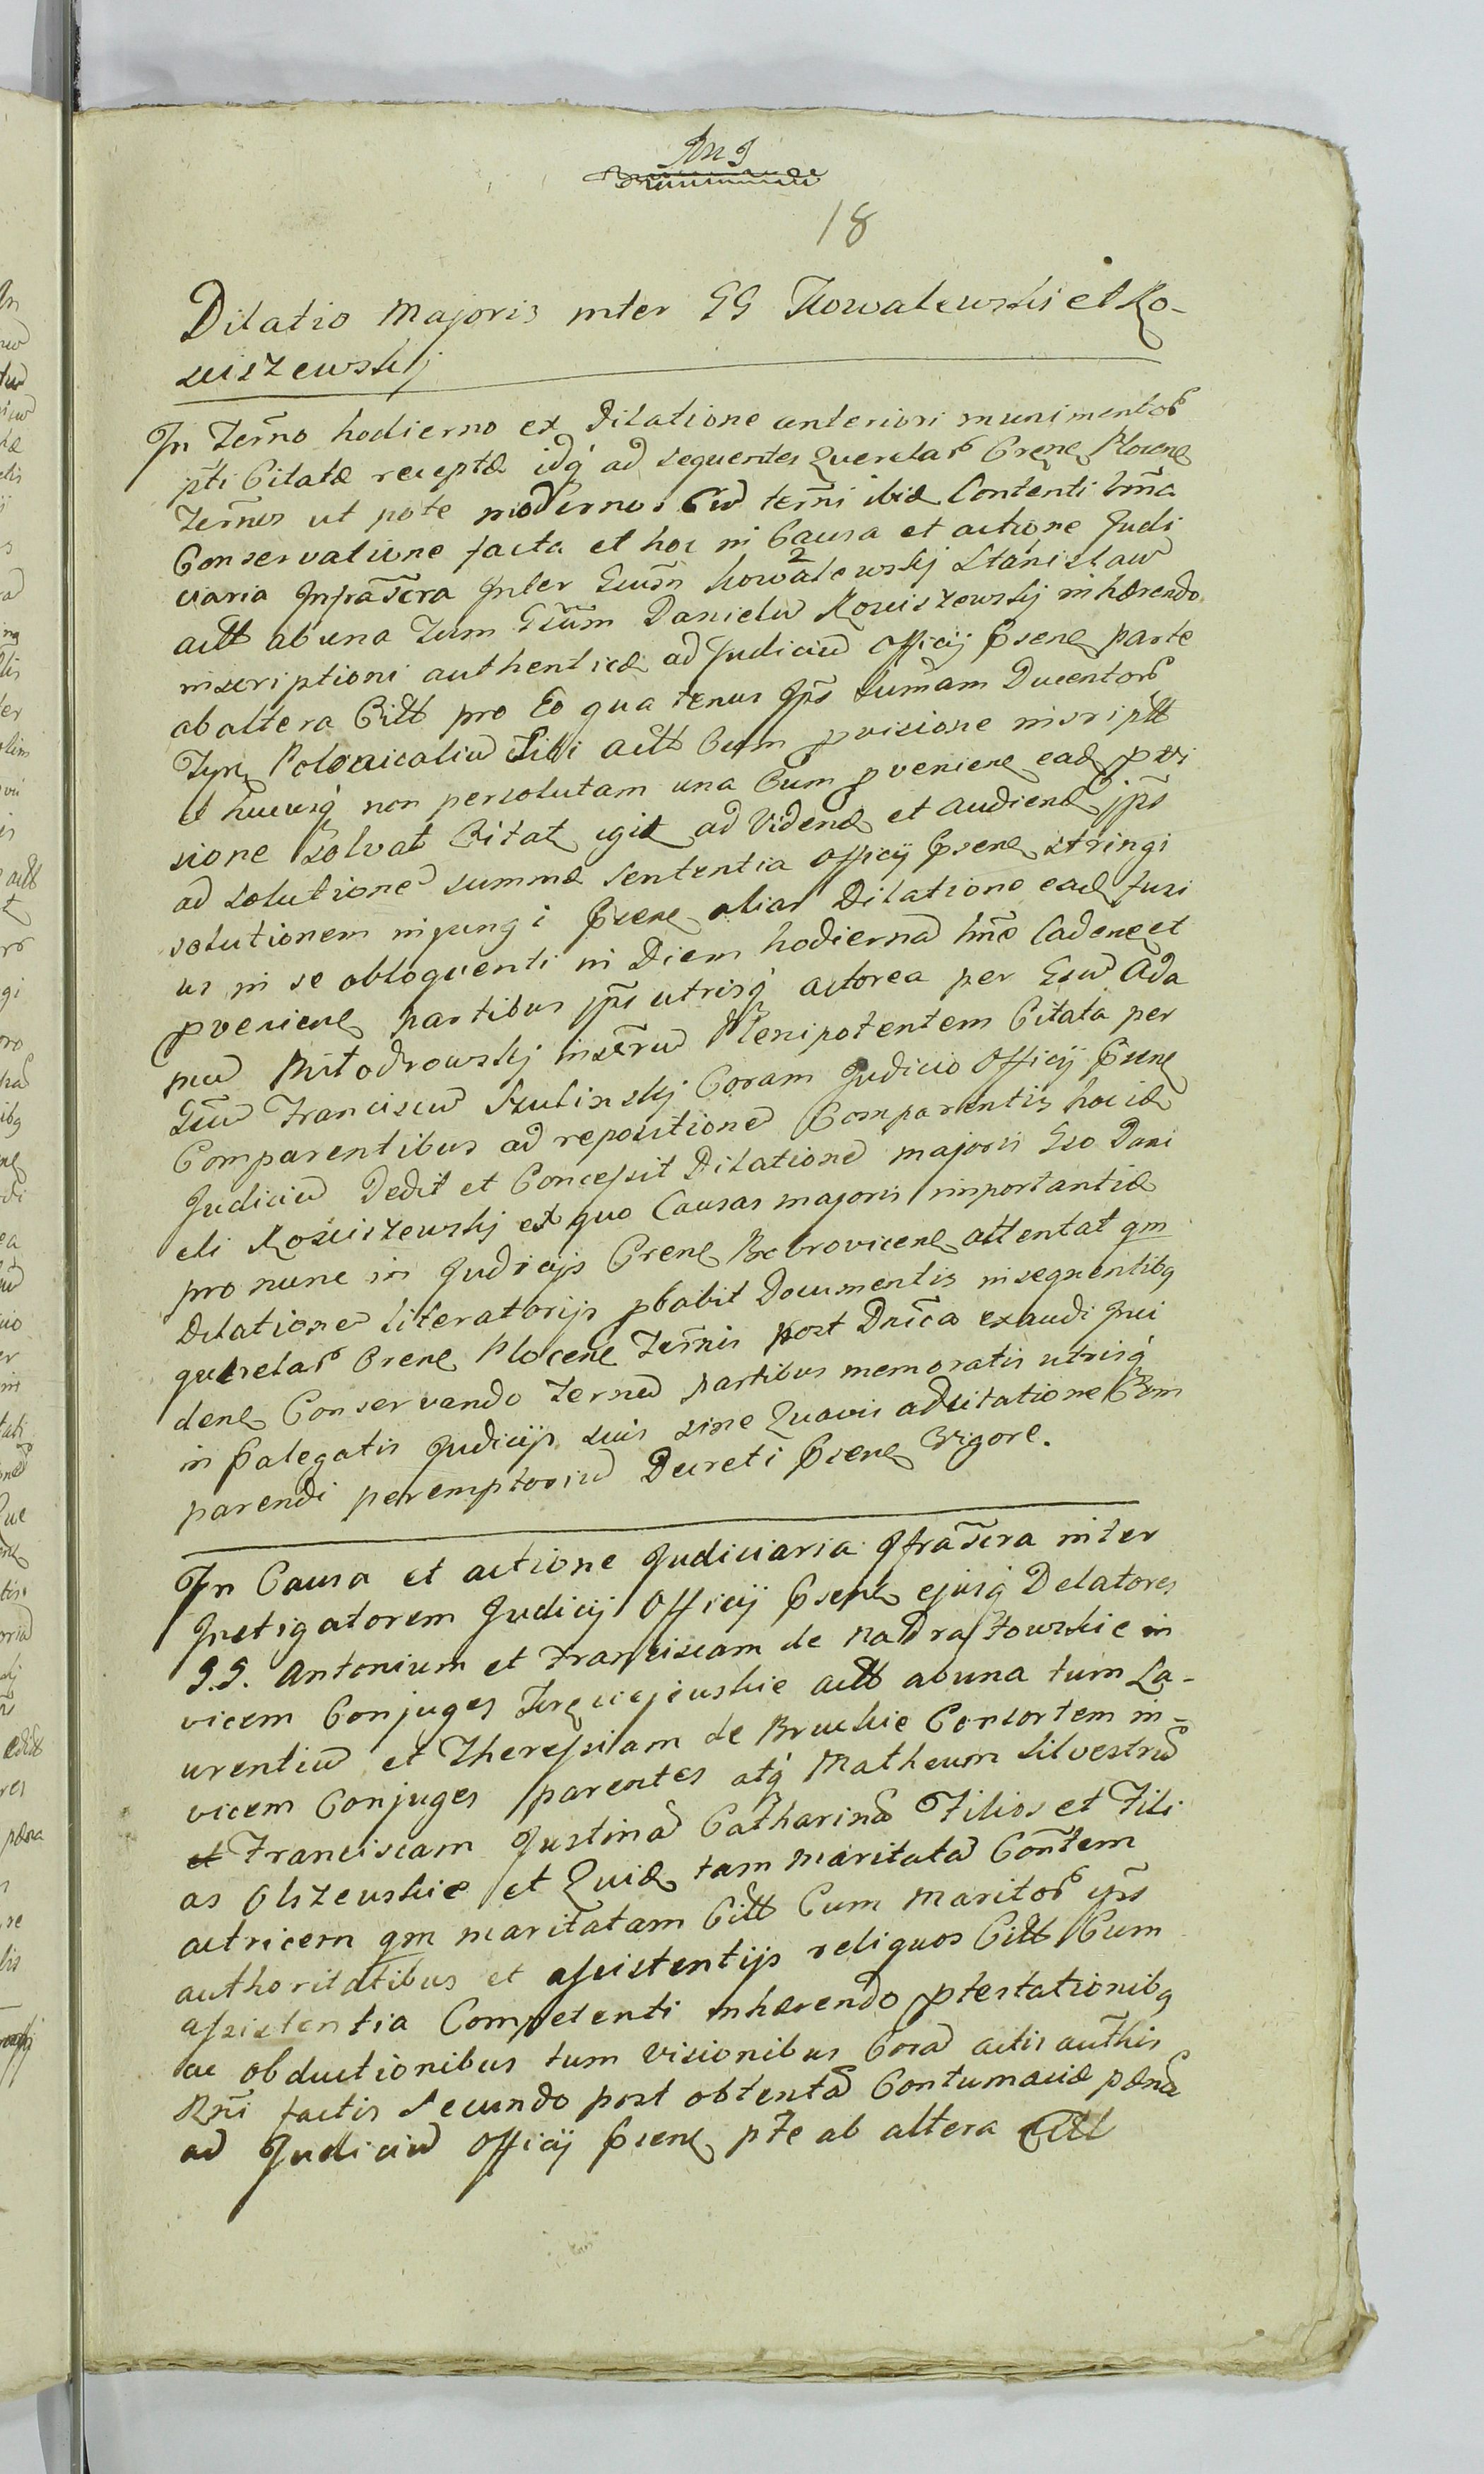 18
Dilatio Majoris inter GG Kowalewski et Ko-
sciszewskij
In Termo hodierno ex Dilatione anteriori munimentor
pti Citatæ receptæ idq ad sequentes Querelar Crens Plocens
Termos ut pote modernos Cum termi ibid Contenti
Conservatione facta et hoc in Causa et actione Judi
ciaria Infrascra Inter Gsum Kowalewskij Stanislaw
actt ab una tum Gsum Danielu Kosciszewskij inhærendo
inscriptioni authenticæ ad Judiciu Officij psens parte
ab altera Citt pro Eo qua tenus Ips Summam Ducentor
Tyn Polonicaliu Sibi actt Cum pvisione inscriptt
et hucusq non persolutam una Cum pveniens ead pvi
sione solvat Citat igit ad Vidend et audiend ips
ad solutione summæ Sententia Officij psens stringi
solutionem injungi psens alias Dilatione ead Juri
us in se obloquenti in Diem hodierna Cadens et
pveniens partibus ips utrisq actorea per Gsu Ada
mu inscru Plenipotentem Citata per
Gsu Franciscu Szulinskij Coram Judicio Officij psens
Comparentibus ad repositione Comparentis hoc id
Judiciu Dedit et Concessit Dilatione majoris Gso Dani
eli Kosciszewskij ex quo Causas majoris importantiæ
pro nunc in Judicijs Crens Bobrovicens attentat qm
Dilatione literatorijs pbabit Documentis in sequentibq
querelar Crens Plocens Termis post Dnica exaudi Inci
dens Conservando Termu partibus memoratis utrisq
in palegatis Judicijs suis sine Quavis adcitatione Com
parendi peremptoriu Decreti psens Vigore.
In Causa et actione Judiciaria Ifrascra inter
Instigatorem Judicij Officij psens ejusq Delatores
G.G. Antonium et Franciscam de Nadratowskie in
vicem Conjuges actt ab una tum La-
urentiu et Theressiam de Bruckie Consortem in-
vicem Conjuges parentes atq Matheum Silvestru
et Franciscam Justina Catharina Filios et Fili
as Olszewskie et Quid tam maritata Contem
actricem qm maritatam Citt Cum maritor ips
authoritatibus et assistentijs reliquos Citt Cum
assistentia Competenti inhærendo ptestationibq
ac obductionibus tum visionibus Cora actis authis
Rni factis Secundo post obtenta Contumaciæ pæna
ad Judiciu Officij psens pte ab altera Citt